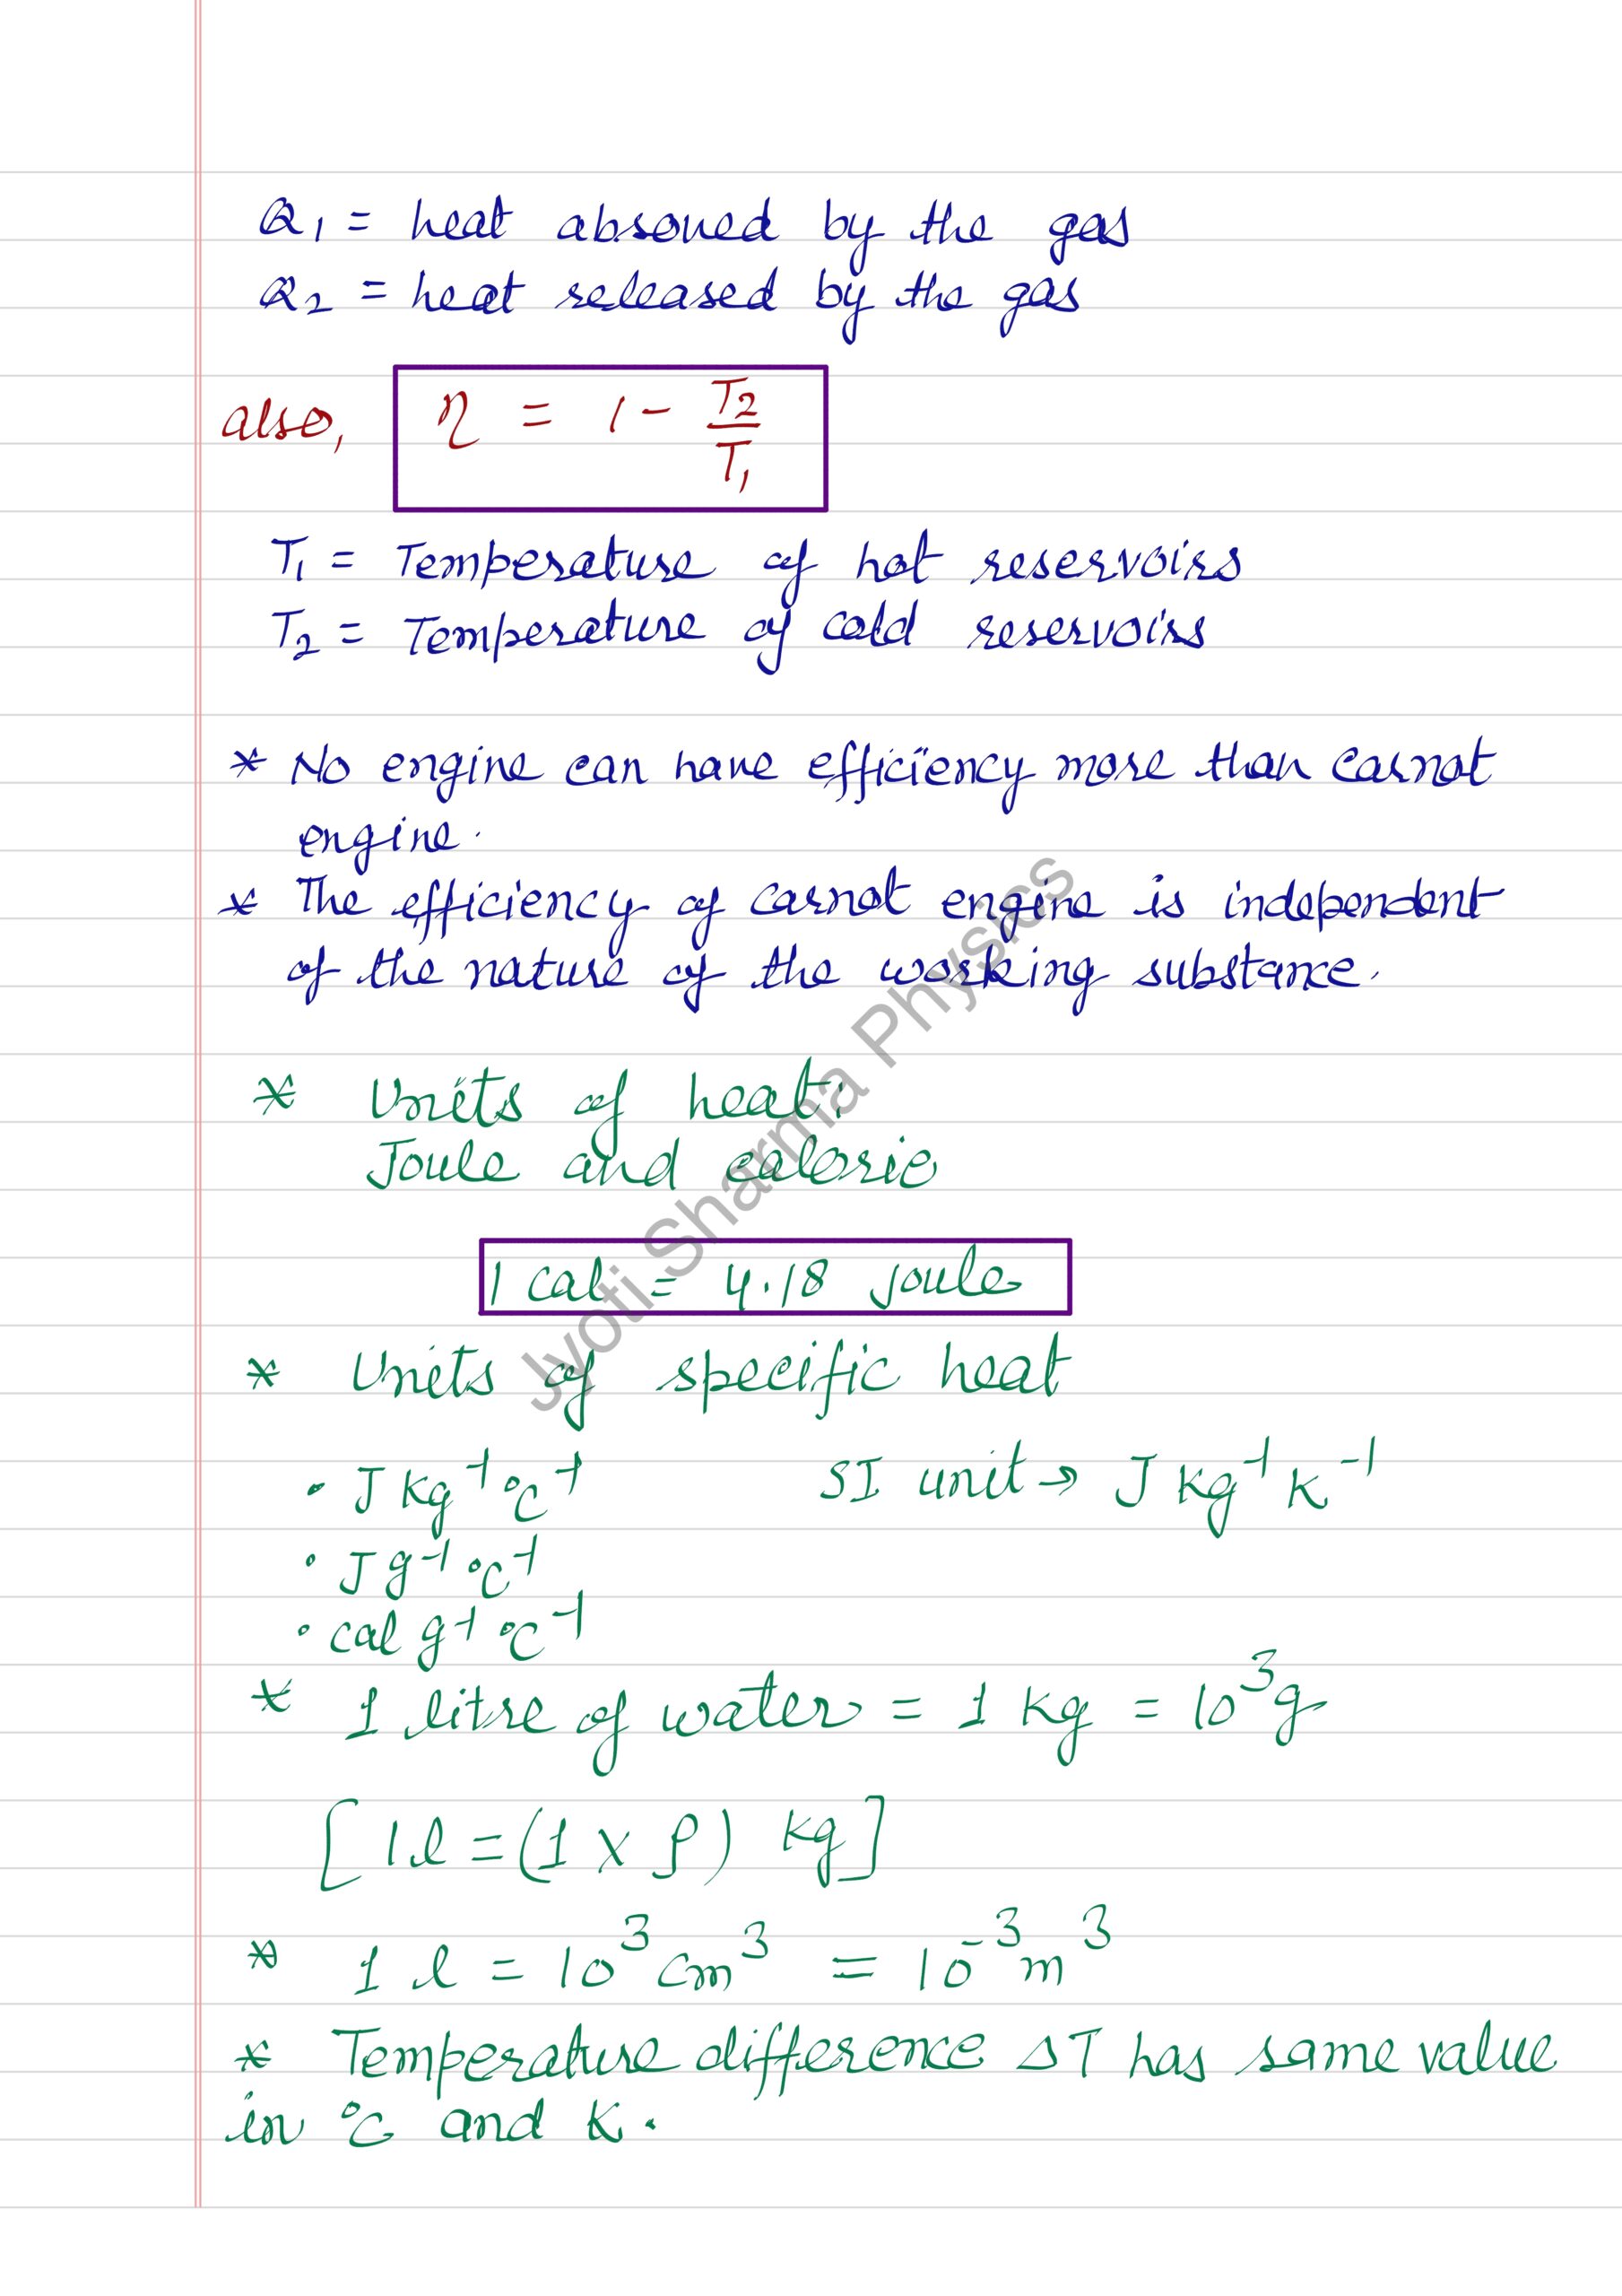 Q₁ = heat absorved by the gas
Q₂ = heat released by the gas
also, η = 1 - T₂/T₁
T₁ = Temperature of hot reservoirs
T₂ = Temperature of cold reservoirs
* No engine can have efficiency more than carnot
engine.
* The efficiency of carnot engine is independent
of the nature of the working substance.
* Units of heat:
Joule and calorie
1 cal = 4.18 joule
* Units of specific heat
• J kg⁻¹ °C⁻¹ SI unit → J kg⁻¹ K⁻¹
• J g⁻¹ °C⁻¹
• cal g⁻¹ °C⁻¹
* 1 litre of water = 1 kg = 10³g
[1l = (1 × ρ) kg]
* 1 l = 10³ cm³ = 10⁻³ m³
* Temperature difference ΔT has same value
in °C and K.
Jyoti Sharma Physics